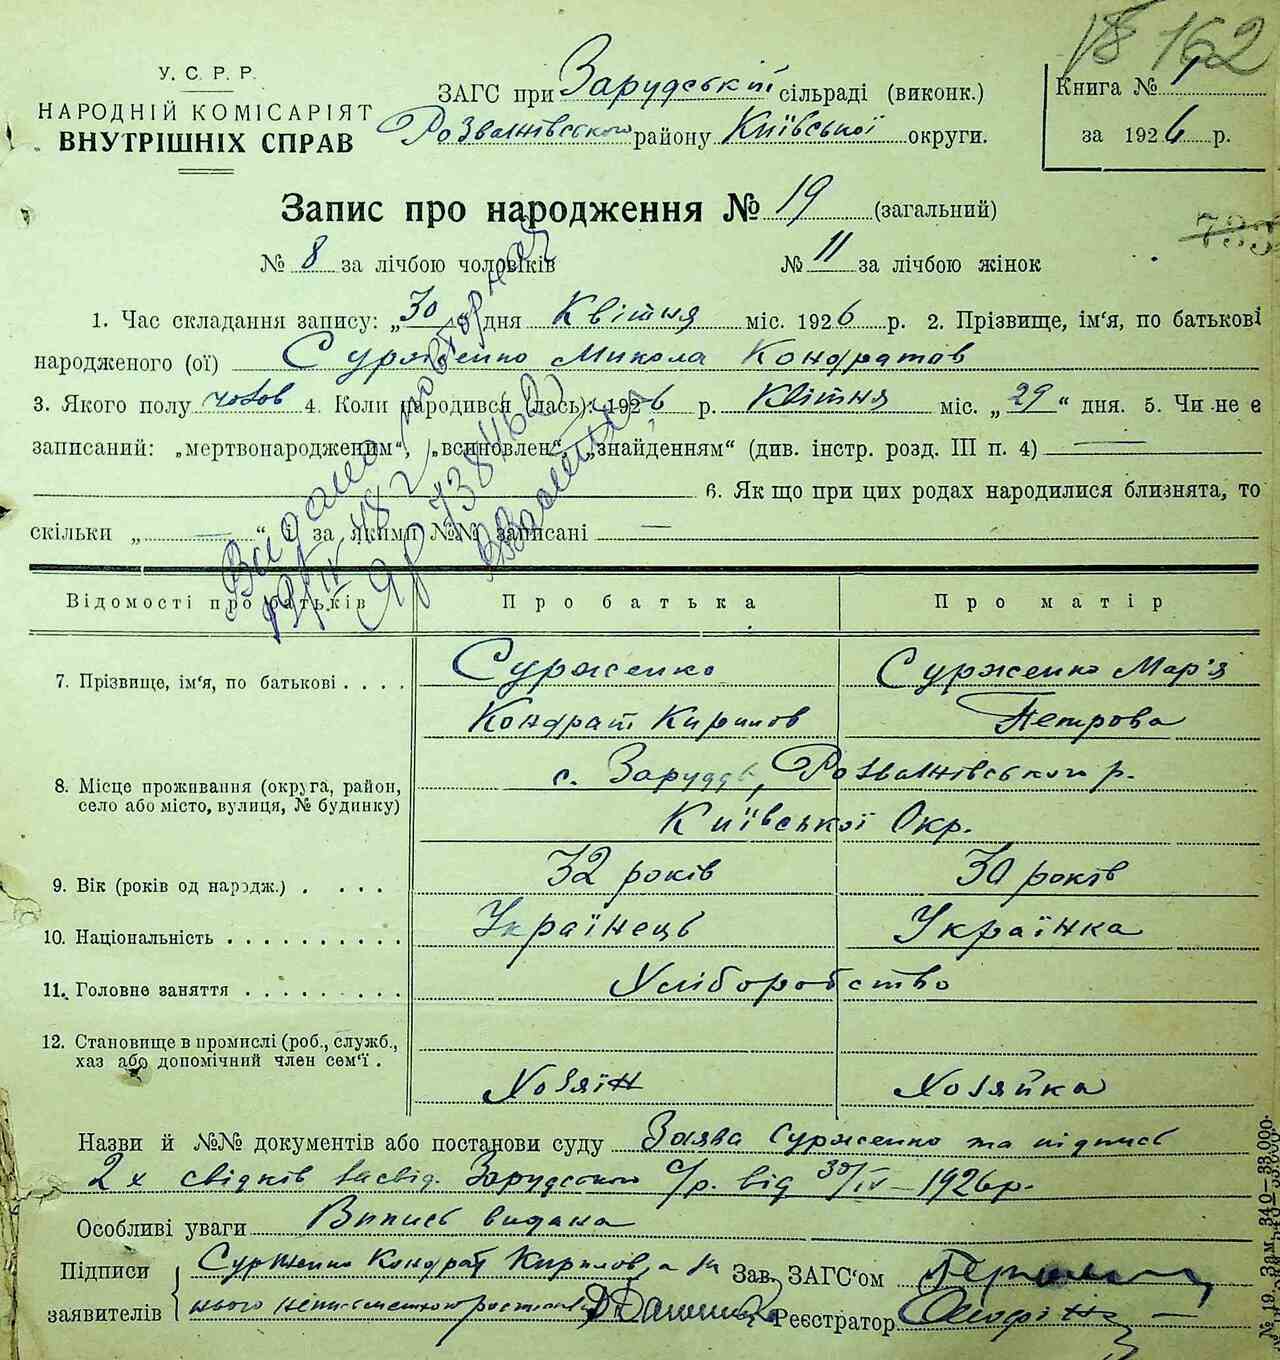 162
У. С. Р. Р.
НАРОДНІЙ КОМІСАРІЯТ
ВНУТРІШНІХ СПРАВ
ЗАГС при Зарудській сільраді (виконк.)
Розважівського району Київської округи.
Книга № 1
за 1926 р.
Запис про народження № 19 (загальний)
733
№ 8 за лічбою чоловіків № 11 за лічбою жінок
1. Час складання запису: „30“ дня Квітня міс. 1926 р. 2. Прізвище, ім‘я, по батькові
народженого (ої) Сурженко Микола Кондратов
3. Якого полу чолов 4. Коли народився (лась): 1926 р. Квітня міс. „29“ дня. 5. Чи не є
записаний: „мертвонародженим“, „всиновлен“, „знайденням“ (див. інстр. розд. III п. 4)
6. Як що при цих родах народилися близнята, то
скільки „ “ і за якими №№ записані
Выдано повторная
Відомості про батьків Про батька Про матір
7. Прізвище, ім‘я, по батькові . . . . Сурженко Сурженко Мар'я
Кондрат Кирилов Петрова
8. Місце проживання (округа, район,
село або місто, вулиця, № будинку)
с. Заруддя, Розважівського р.
Київської Окр.
9. Вік (років од народж.) . . . . 32 років 30 років
10. Національність . . . . . . . . . . Українець Українка
11. Головне заняття . . . . . . . . . Хліборобство
12. Становище в промислі (роб., служб.,
хаз або допомічний член сем‘ї .
Хозяїн Хозяйка
Назви й №№ документів або постанови суду Заява Сурженко та підпис
2х свідків засвід. Зарудською с/р. від 30/IV – 1926 р.
Особливі уваги Випись видана
Підписи Сурженко Кондрат Кирилов, а за Зав. ЗАГС‘ом
заявителів нього неписьменного Реєстратор
№ 19. Зам. 340—33.000.